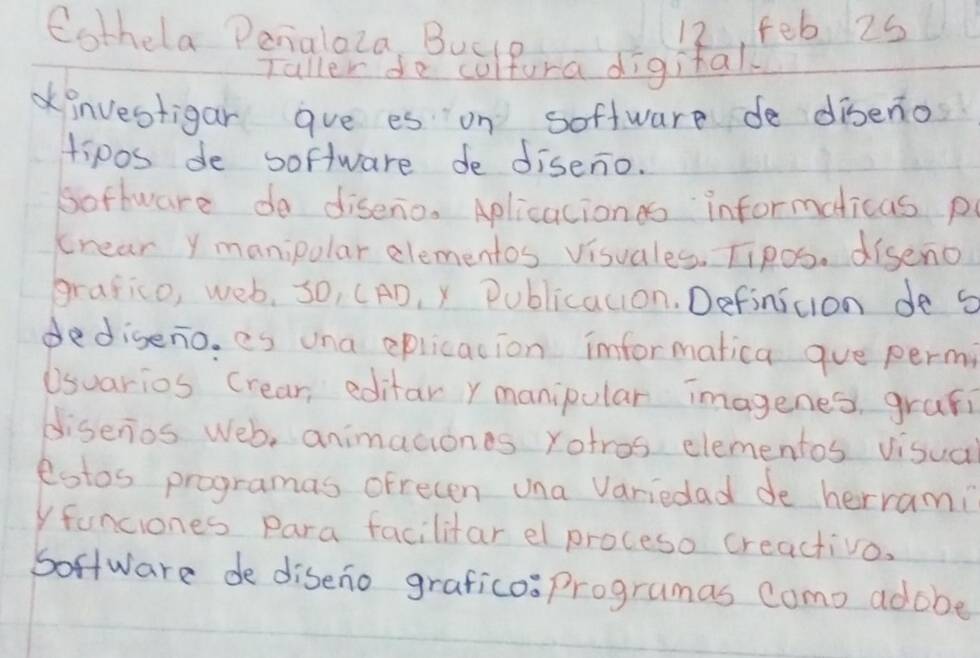 Esthela Peñaloza Bucio 12 feb 25
Taller de cultura digital.
investigar que es un software de diseño
tipos de software de diseño.
software de diseño. Aplicaciones informaticas
crear y manipular elementos visuales. Tipos. diseño
grafico, web, 3D, CAD, y Publicacion. Definicion de s
de diseño. es una aplicacion imformatica que permi
Usuarios crear, editar y manipular imagenes, grafi
diseños web, animaciones y otros elementos visual
estos programas ofrecen una variedad de herrami
y funciones para facilitar el proceso creactivo.
Software de diseño grafico: Programas como adobe